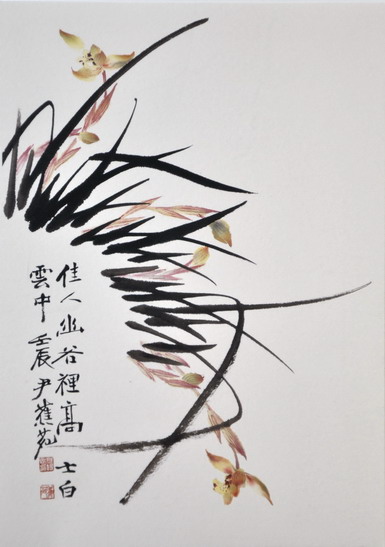 佳人幽谷裡高士白
雲中 壬辰 尹蕉苑